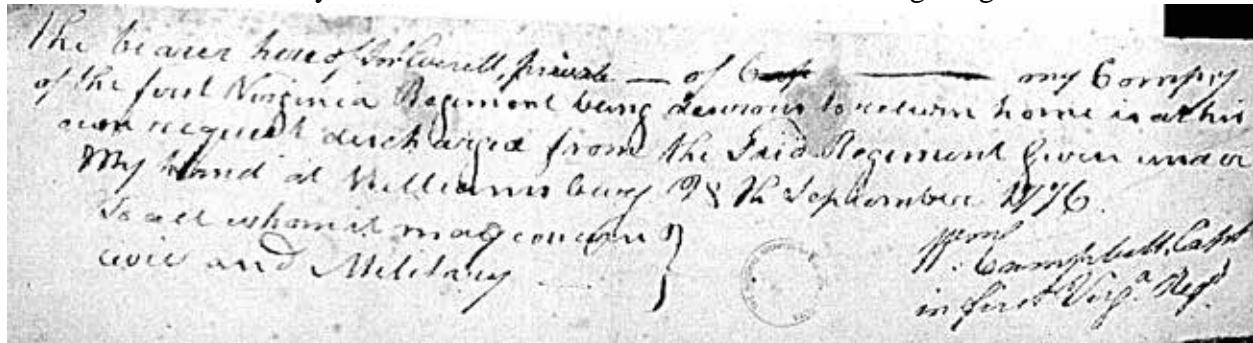 The bearer hereof Jno Everett, private — of Capt —— my Compy
of the first Virginia Regiment being desirous to return home is at his
own request discharged from the Said Regiment Given under
My hand at Williamsburg 28th September 1776.
To all whom it may concern }
civil and Military
Wm. Campbell, Capt
in first Virga. Regt.